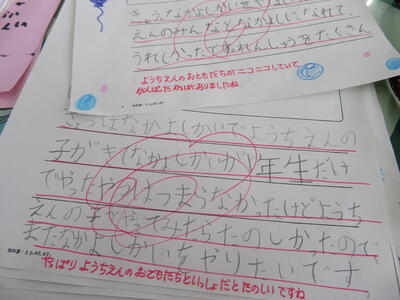 えんのみんなとなかよしになれて、
うれしかったです。れんしゅうをたくさん
ようちえんのおともだちがニコニコしていて
がんばったかいがありましたね。
教科書:P.6,45,47
きょうはなかよしかいでようちえんの
子がきてなかよしかいが1年生だけ
でやったやつはつまらなかったけどようち
えんの子とやってみたらたのしかったので
またなかよしかいをやりたいです
教科書:P.6,45,47
やっぱりようちえんのおともだちといっしょだとたのしいですね